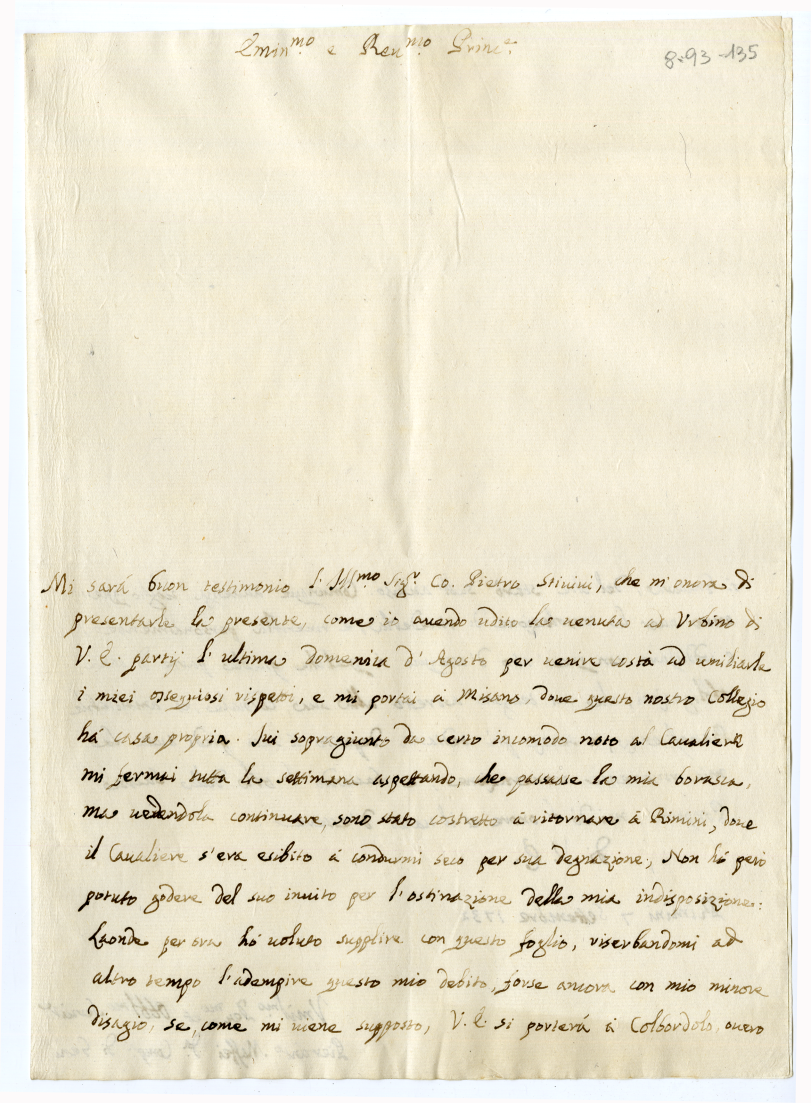 Emin.mo e Reu.mo Princ.e
8-93-135
Mi sará buon testimonio l'Ill.mo Sig.r Co. Pietro Stiuiui, che m'onora di
presentarle la presente, come io auendo udito la uenuta ad Vrbino di
V. E. partij l'ultima Domenica d'Agosto per uenire costà ad umiliarle
i miei ossequiosi rispetti, e mi portai á Misano, doue questo nostro Collegio
há casa propria. Iui sopragiunto da certo incomodo noto al Caualiere
mi fermai tutta la settimana aspettando, che passasse la mia borasca,
ma uedendola continuare, sono stato costretto á ritornare á Rimini, doue
il Caualiere s'era esibito á condurmi seco per sua degnazione; Non há però
potuto godere del suo inuito per l'ostinazione della mia indisposizione:
Laonde per ora hó uoluto supplire con questo foglio, riserbandomi ad
altro tempo l'adempire questo mio debito, forse ancora con mio minore
disagio, se, come mi uiene supposto, V. E. si porterá á Colbordolo, ouero